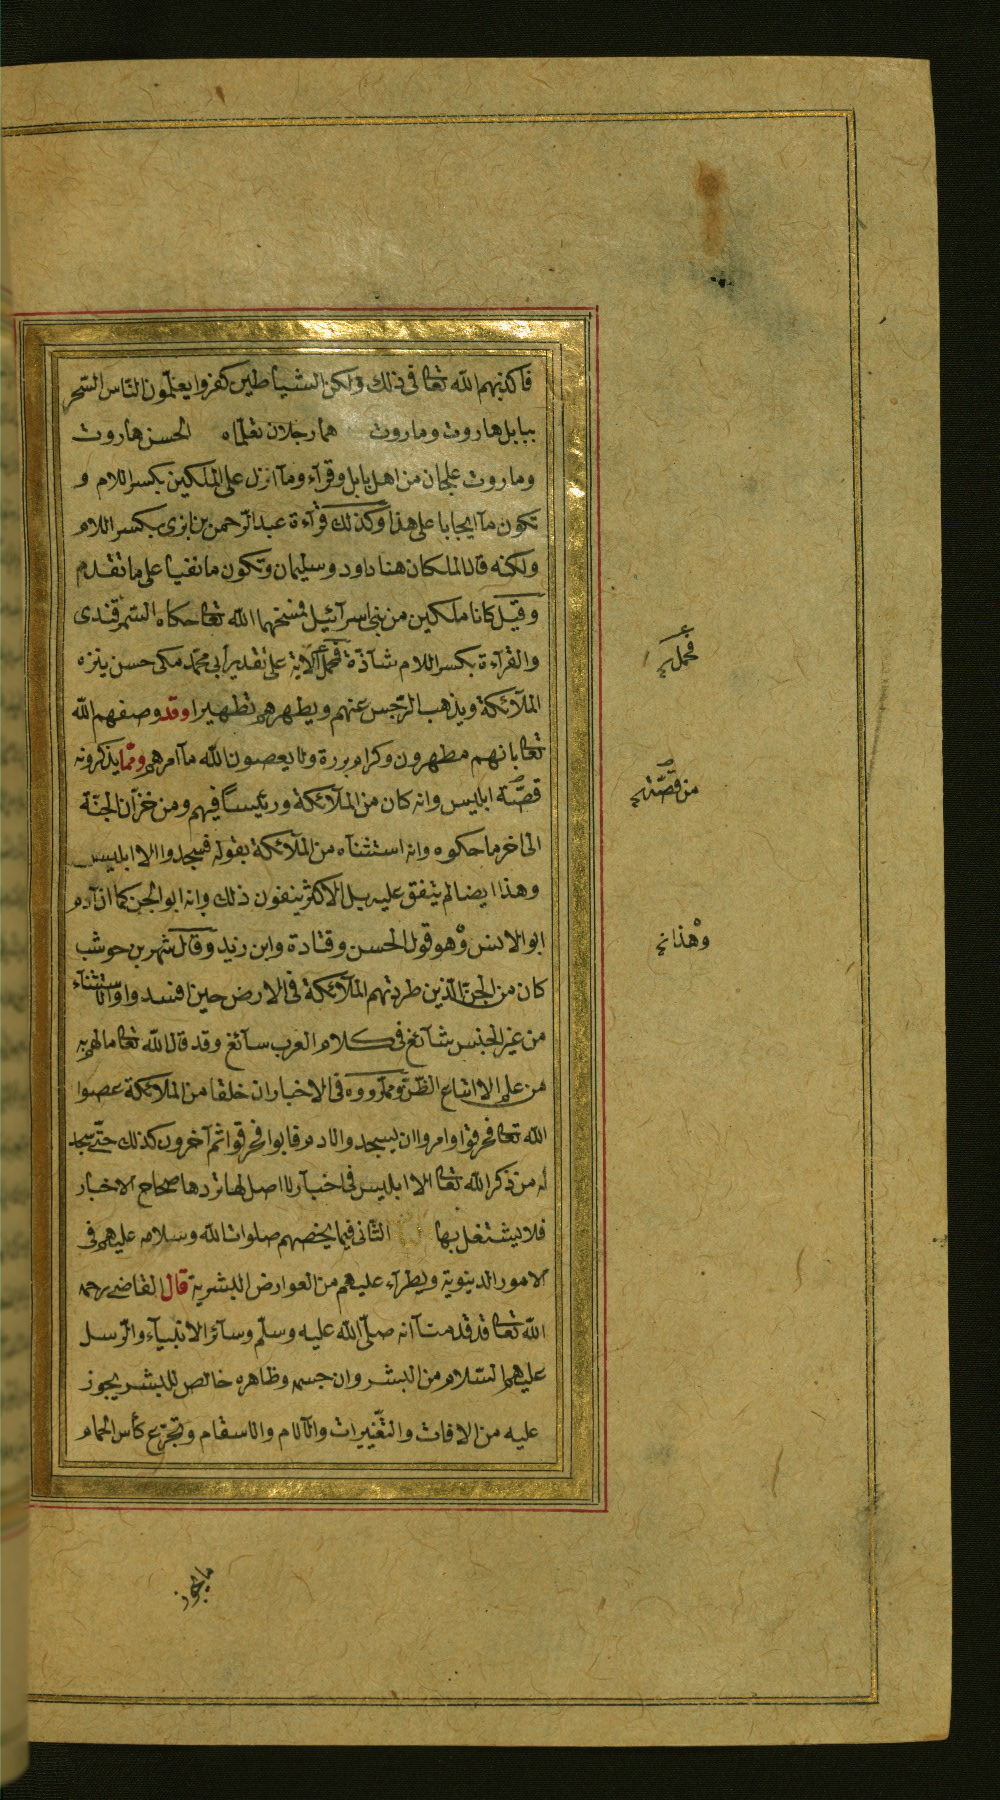 فاكذبهم الله تعا فى ذلك ولكن الشياطين كفروا يعلمون الناس السحر
ببابل هاروت وماروت هما رجلان تعلماه الحسن هاروت
وماروت علجان من اهل بابل وقرأ وما انزل على الملكين بكسر اللام و
تكون ما ايجابا على هذا وكذلك قرآءة عبد الرحمن بن ابزى بكسر اللام
ولكنه قال الملكان هنا داود وسليمان وتكون ما نفيا على ما تقدم
وقيل كانا ملكين من بنى اسرآئيل فمسخهما الله تعا حكاه السمرقندى
والقرآءة بكسر اللام شآذة فمحمل الآية على تقدير أبى محمد مكى حسن ينزه
الملآئكة ويذهب الرجس عنهم ويطهرهم تطهيرا وقد وصفهم الله
تعا بانهم مطهرون وكرام بررة ولا يعصون الله ما آمرهم ومما يذكرونه
قصة ابليس وانه كان من الملآئكة ورئيسا فيهم ومن خزآن الجنة
الى اخر ما حكوه وانه استثناه من الملآئكة بقوله فسجدوا الا ابليس
وهذا ايضا لم يتفق عليه بل الاكثر ينفون ذلك وانه ابو الجن كما ان آدم
ابو الانس وهو قول الحسن وقتادة وابن زيد وقال شهر بن حوشب
كان من الجن الذين طردتهم الملآئكة فى الارض حين افسدوا والاستثنآء
من غير الجنس شآئع فى كلام العرب سآئغ وقد قال الله تعا ما لهم به
من علم الا اتباع الظن ومما رووه فى الاخبار ان خلقا من الملآئكة عصوا
الله تعا فحرقوا وامروا ان يسجدوا لادم فابوا فحرقوا ثم آخرون كذلك حتى سجد
له من ذكر الله تعا الا ابليس فى اخبار لا اصل لها تردها صحاح الاخبار
فلا يشتغل بها الثانى فيما يخصهم صلوات الله وسلامه عليهم فى
الامور الدينوية ويطرآء عليهم من العوارض البشرية قال القاضى رحمه
الله تعا قد قدمنا آنه صلى الله عليه وسلم وسآئر الانبيآء والرسل
عليهم السلام من البشر وان جسمه وظاهره خالص للبشر يجوز
عليه من الافات والتغييرات والآلام والاسقام وتجرع كأس الحمام
فمحمل
من قصة
وهذا
ما يجوز